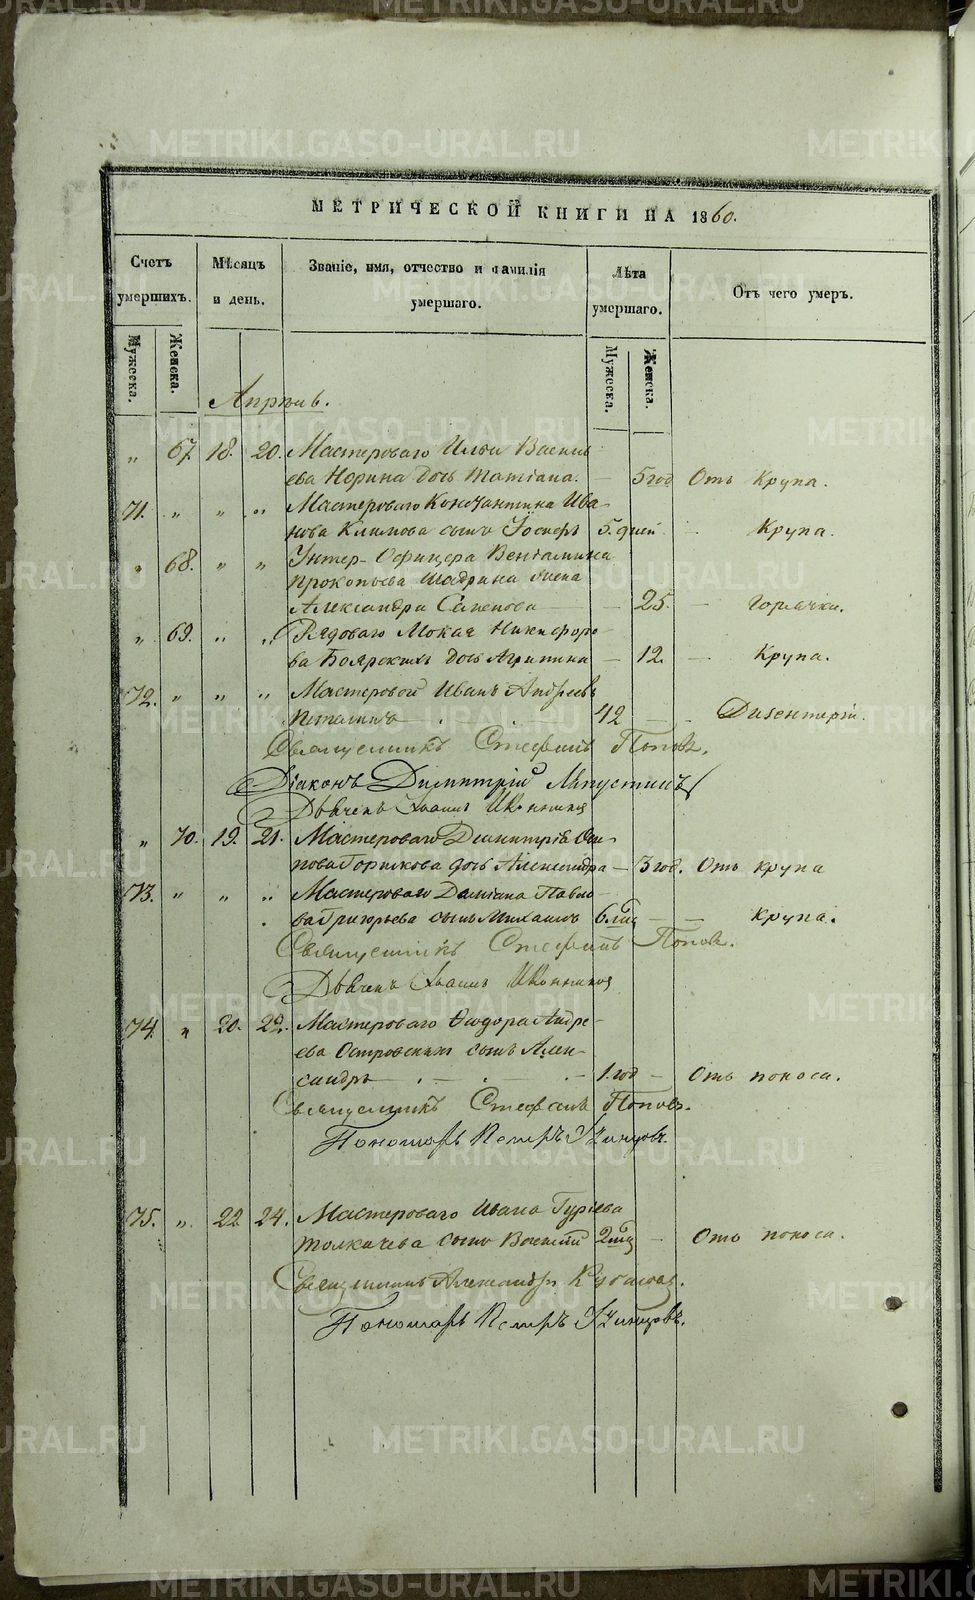 МЕТРИЧЕСКОЙ КНИГИ НА 1860.
Счетъ умершихъ.
Мѣсяцъ и день.
Званіе, имя, отчество и фамилія умершаго.
Лѣта умершаго.
Отъ чего умеръ.
Мужеска.
Женска.
Мужеска.
Женска.
Апрѣль.
„ 67. 18. 20. Мастероваго Ильи Василь
ева Норина дочь Татіана. — 5 год Отъ Крупа.
71. „ „ „ Мастероваго Константина Ива-
нова Климова сынъ Іосифъ 5. дней — Крупа.
„ 68. „ „ Унтер-Офицера Веніамина
Прокопьева Шадрина жена
Александра Семенова — — 25. — Горячки.
„ 69. „ „ Рядоваго Мокая Никифоро-
ва Боярскихъ дочь Агрипина — 12. — Крупа.
72. „ „ „ Мастеровой Иванъ Андреевъ
42 — — Дизентеріи.
Священникъ Стефанъ Поповъ.
Діаконъ Димитрій Ляпустинъ
Дьячекъ Іоаннъ Иконников
„ 70. 19. 21. Мастероваго Димитрія Оси-
пова Горшкова дочь Александра — 3 год. Отъ крупа
73. „ „ „ Мастероваго Даміана Павло-
ва Григорьева сынъ Михаилъ 6. мцъ — — крупа.
Священникъ Стефанъ Поповъ.
Дьячекъ Іоаннъ Иконников
74. „ 20. 22. Мастероваго Ѳеодора Андре-
ева Островскихъ сынъ Алек-
сандръ 1. год — Отъ поноса.
Священникъ Стефанъ Поповъ.
Пономарь Петръ Удинцовъ.
75. „ 22 24. Мастероваго Ивана Гурьева
Толкачева сынъ Василій 2 мцъ — Отъ поноса.
Священникъ Александръ
Пономарь Петръ Удинцовъ.
METRIKI.GASO-URAL.RU